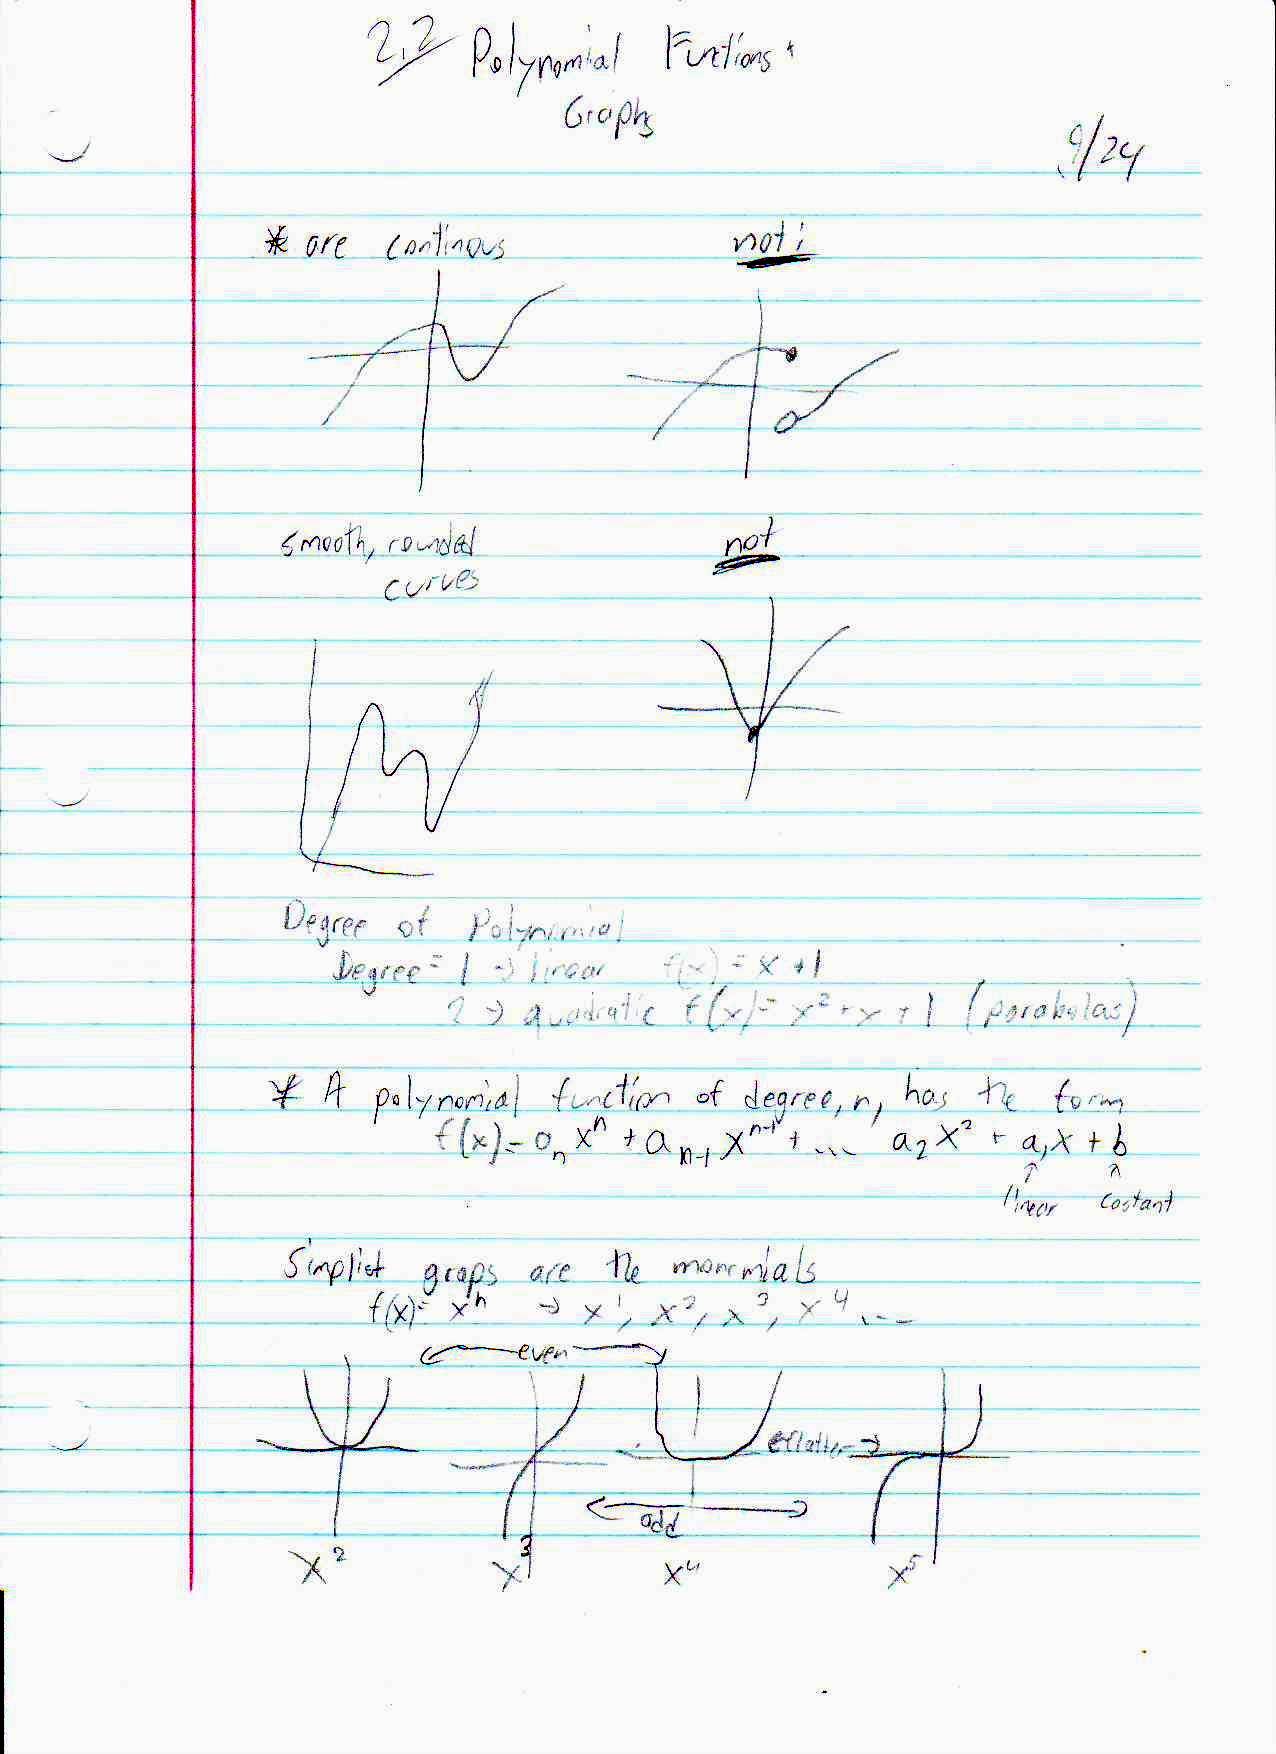 2.2 Polynomial Functions +
Graphs
9/24
* are continous
not:
smooth, rounded
curves
not
Degree of Polynomial
Degree = 1 → linear f(x) = x + 1
2 → quadratic f(x) = x² + x + 1 (parabolas)
* A polynomial function of degree, n, has the form
f(x) = aₙxⁿ + aₙ₋₁xⁿ⁻¹ + ... a₂x² + a₁x + b
↑ ↑
linear costant
Simplist graps are the monomials
f(x) = xⁿ → x¹, x², x³, x⁴ ...
← even →
flatter →
← odd →
x² x³ x⁴ x⁵